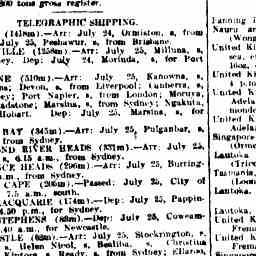 800 tons gross register.
TELEGRAPHIC SHIPPING.
(1418m).—Arr: July 24, Ormiston, s, from
July 25, Peshawur, s, from Brisbane.
VILLE (1258m).—Arr: July 25, Milluna, s,
ney. Dep: July 24, Morinda, s, for Port
NE (510m).—Arr: July 25, Kanowna, s,
na; Devon, s, from Liverpool; Canberra, s,
ey; Port Napier, s, from London; Moruya,
adstone; Marsina, s, from Sydney; Ngakuta,
Hobart. Dep: July 25, Marsina, s, for
BAY (345m).—Arr: July 25, Pulganbar, s,
from Sydney.
OND RIVER HEADS (331m).—Arr: July 25,
s, 6.15 a.m., from Sydney.
NCE HEADS (296m).—Arr: July 25, Burring-
a.m., from Sydney.
CAPE (206m).—Passed: July 25, City of
7.5 a.m., south.
MACQUARIE (174m).—Dep: July 25, Pappin-
4.50 p.m., for Sydney.
STEPHENS (89m).—Dep: July 25, Coweam-
.40 a.m., for Newcastle.
STLE (62m).—Arr: July 25, Stockrington, s,
s, Helen Nicol, s, Bealiba, s, Christina
s, Ready, s, from Sydney;
Fanning I
Naura an
(Wong
United Ki
sea, et
Dion,
United K
4 p.m.
United K
Adela
moude
United K
Adela
Singapore
(Ormo
Lautoka
(Trice
Tasmania,
(Loon
Lautoka.
Lautoka.
United K
Frema
Singapore
United K
Frem